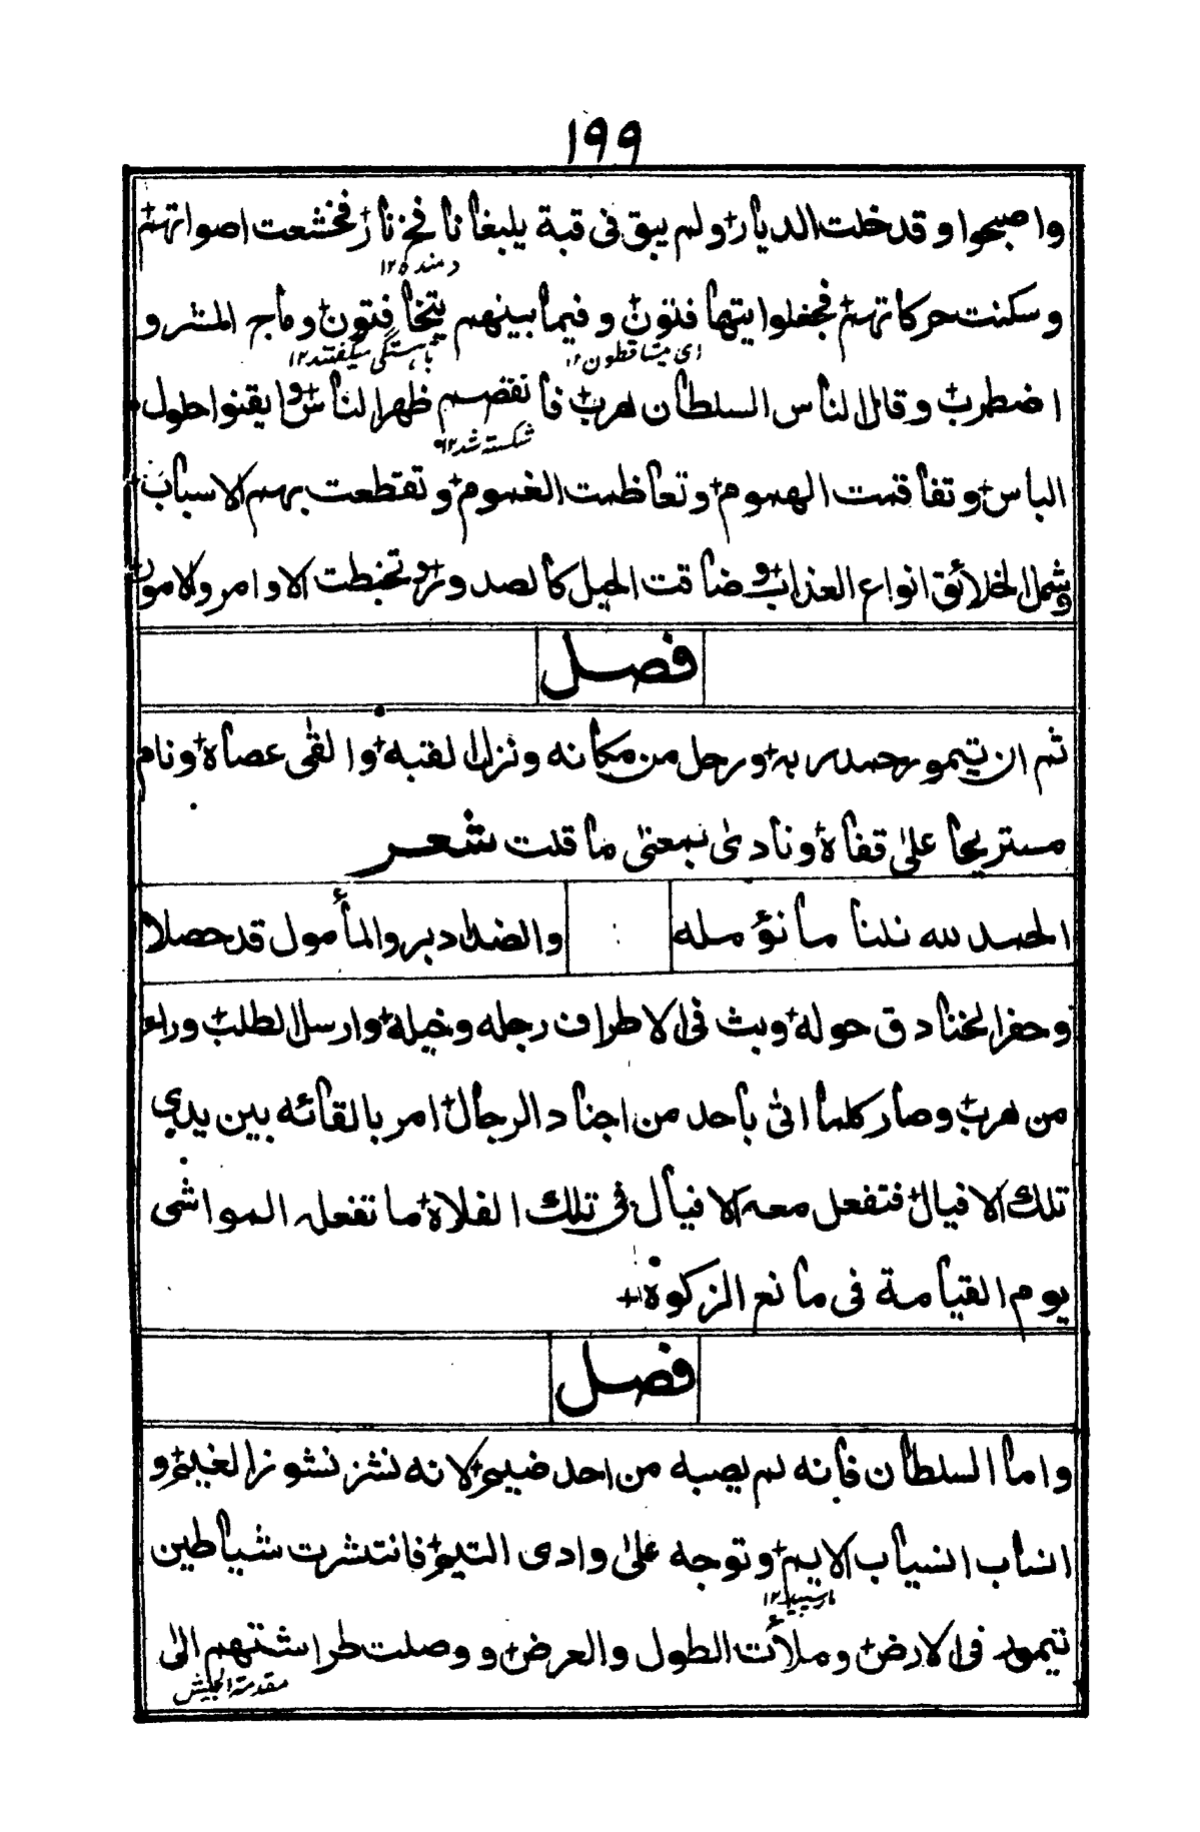 ١٩٩
واصبحوا وقد خلت الديار+ ولم يبق فى قبة يلبغا نافخ نار+ فخشعت اصواتهم+
دمنده ١٢
وسكنت حركاتهم+ فجعلوا يتهافتون+ وفيما بينهم يتخافتون+ وماج المشر و
اى يتساقطون ١٢
باهستگى ميگفتند ١٢
اضطرب+ وقال الناس السلطان هرب+ فانقضم ظهر الناس+ وايقنوا حلول
شكسته شد ١٢
الباس+ وتفاقمت الهموم+ وتعاظمت الغموم+ وتقطعت بهم الاسباب+
وشمل الخلائق انواع العذاب+ وضاقت الحيل كالصدور+ وتخبطت الاوامر والامور+
فصل
ثم ان تيمور حمد ربه+ ورحل من مكانه ونزل القبه+ والقى عصاه+ ونام
مستريحا على قفاه+ ونادى بمعنى ما قلت شعر
الحمد لله نلنا ما نؤمله
والضد ادبر والمأمول قد حصلا
وحفر الخنادق حوله+ وبث فى الاطراف رجله وخيله+ وارسل الطلب+ وراء
من هرب+ وصار كلما اتى باحد من اجناد الرجال+ امر بالقائه بين يدى
تلك الافيال+ فتفعل معه الافيال فى تلك الفلاة+ ما تفعله المواشى
يوم القيامة فى مانع الزكوة+
فصل
واما السلطان فانه لم يصبه من احد ضيم+ لانه نشز نشوز الغيم+ و
انساب انسياب الايم+ وتوجه على وادى التيم+ فانتشرت شياطين
مار سپيد ١٢
تيمور فى الارض+ وملأت الطول والعرض+ ووصلت طراشتهم الى
مقدمة الجيش